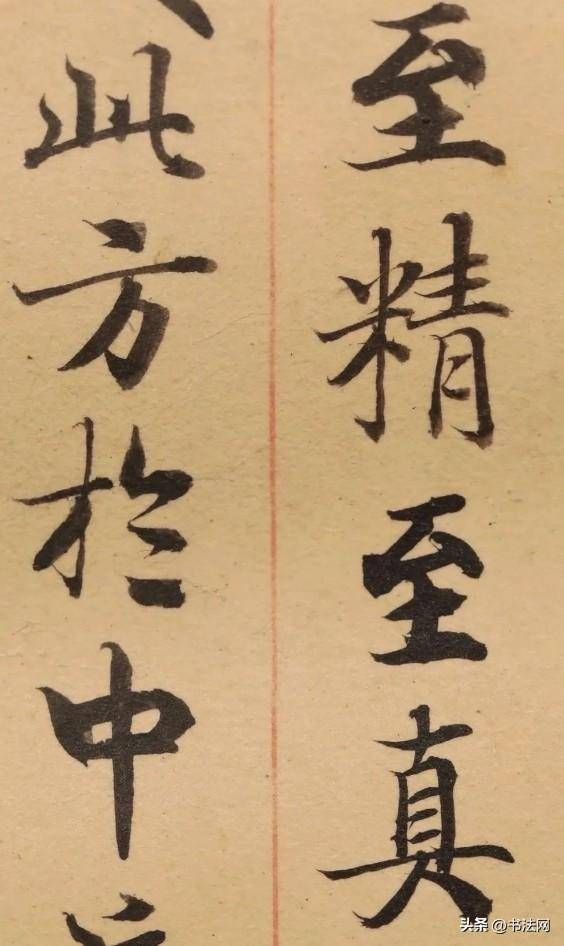 至精至真
此方於中
头条 @书法网